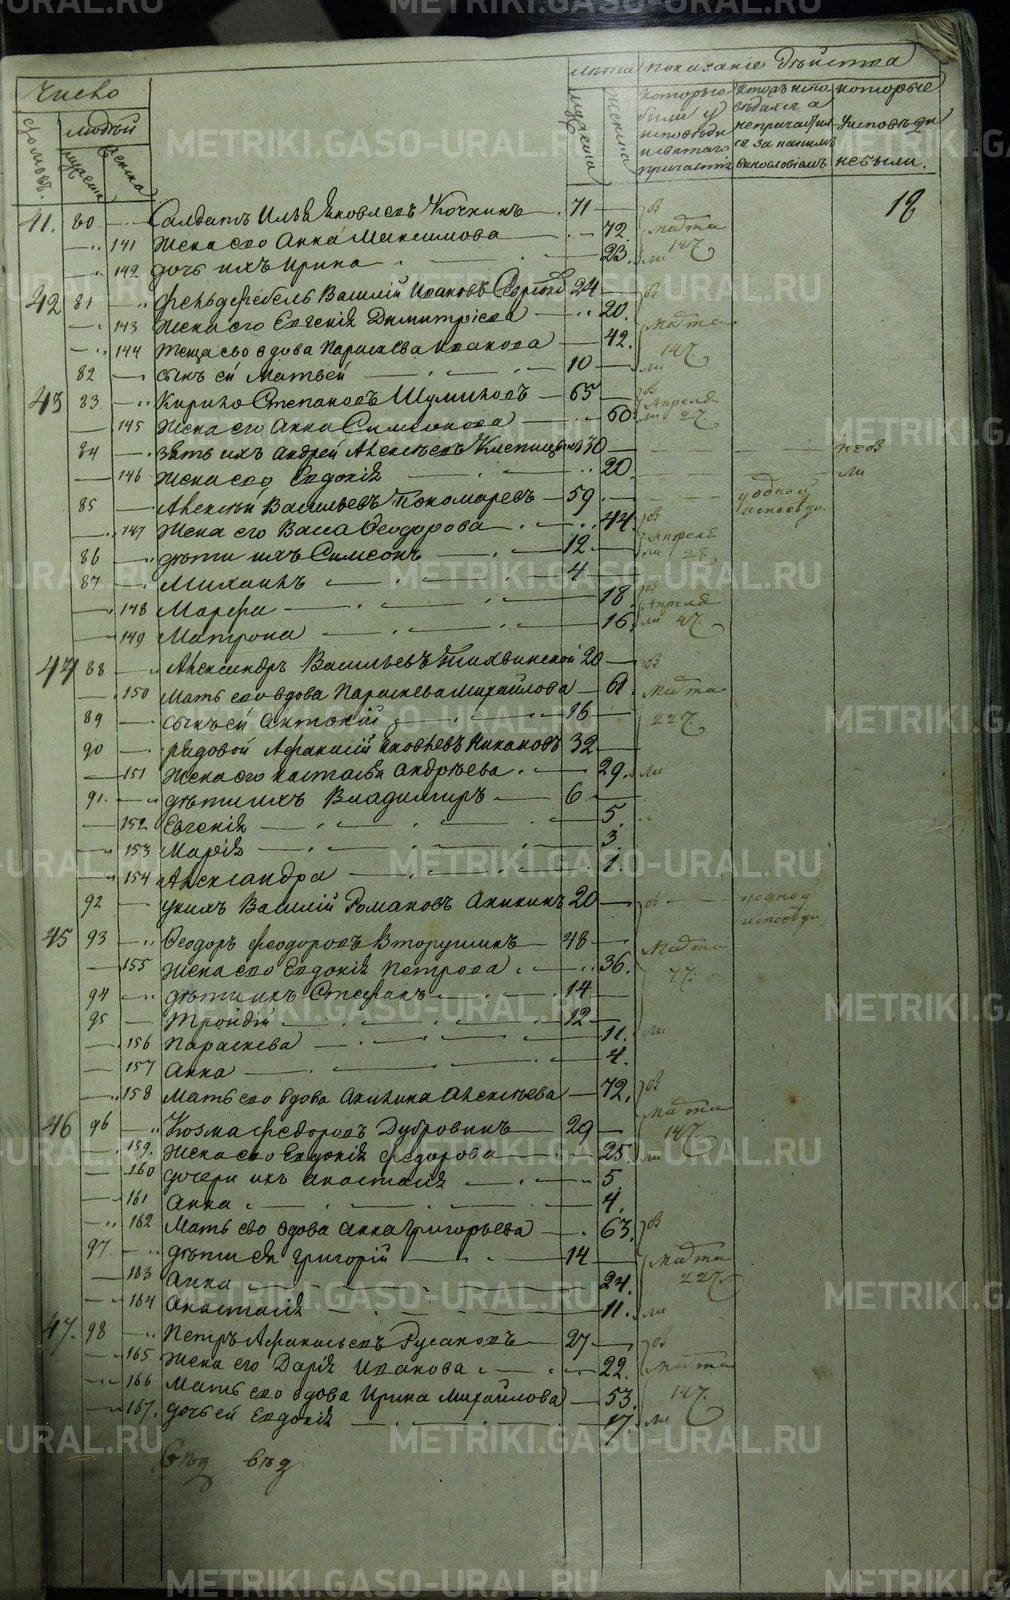 Число
лѣта показаніе дѣйства
домовъ. людей
мужеска женска
мужеска женска
которые были у исповѣди и святаго причастія
которые исповѣдался а непричастился за какимъ винословіемъ
которые у исповѣди небыли.
18
41. 80 Салдатъ Илья Яковлевъ Кочкинъ 71 ов
141 Жена его Анна Максимова 72 марта
142 дочь ихъ Ирина 23. 14 ли
42 81 Фельдфебель Василій Ивановъ 24 ов
143 Жена его Евгенія Димитріева 20.
144 Теща его вдова Параскева Иванова 42. марта 14
82 сынъ ей Матвей 10 ли
43 83 Кирило Степановъ Шуминовъ 65 ов
145 Жена его Анна Симеонова 60. Апреля 27 ли
84 зять ихъ Андрей Алексѣевъ 30 неов
146 Жена его Евдокія 20 ли
85 Алексѣй Васильевъ Пономаревъ 59 у одной исповѣди
147 Жена его Васса Феодорова 44. ов
86 дѣти ихъ Симеонъ 12 Апреля
87 Михаилъ 4 ли
148 Марфа 18 ов Апреля
149 Матрона 16 ли 27
44 88 Александръ Васильевъ Тихвинской 20 ов
150 Мать его вдова Параскева Михайлова 61. марта
89 сынъ ей Антоній 16 22
90 рядовой Афанасій Яковлевъ 32
151 Жена его Настасья Андрѣева 29. ли
91 дѣти ихъ Владимиръ 6
152 Евгенія 5.
153 Марія 3
154 Александра 1.
92 у нихъ Василій Романовъ Аникинъ 20 ов у одной исповѣди
45 93 Феодоръ Феодоровъ Вторушинъ 48 марта
155 Жена его Евдокія Петрова 36. 7
94 дѣти ихъ Стефанъ 14
95 12 ли
156 Параскева 11.
157 Анна 4.
158 Мать его вдова Акилина Алексѣева 72. ов
46 96 Козма Федоровъ Дубровинъ 29 марта 14
159. Жена его Евдокія Федорова 25. ли
160 дочери ихъ Анастасія 5
161 Анна 4.
162 Мать его вдова Анна Григорьева 63. ов
97 дѣти ея Григорій 14 марта
163 Анна 24. 22
164 Анастасія 11. ли
47. 98 Петръ Афанасьевъ Русановъ 27 ов
165 Жена его Дарія Иванова 22. марта
166 Мать его вдова Ирина Михайлова 53. 14
167. дочь ей Евдокія 17. ли
METRIKI.GASO-URAL.RU